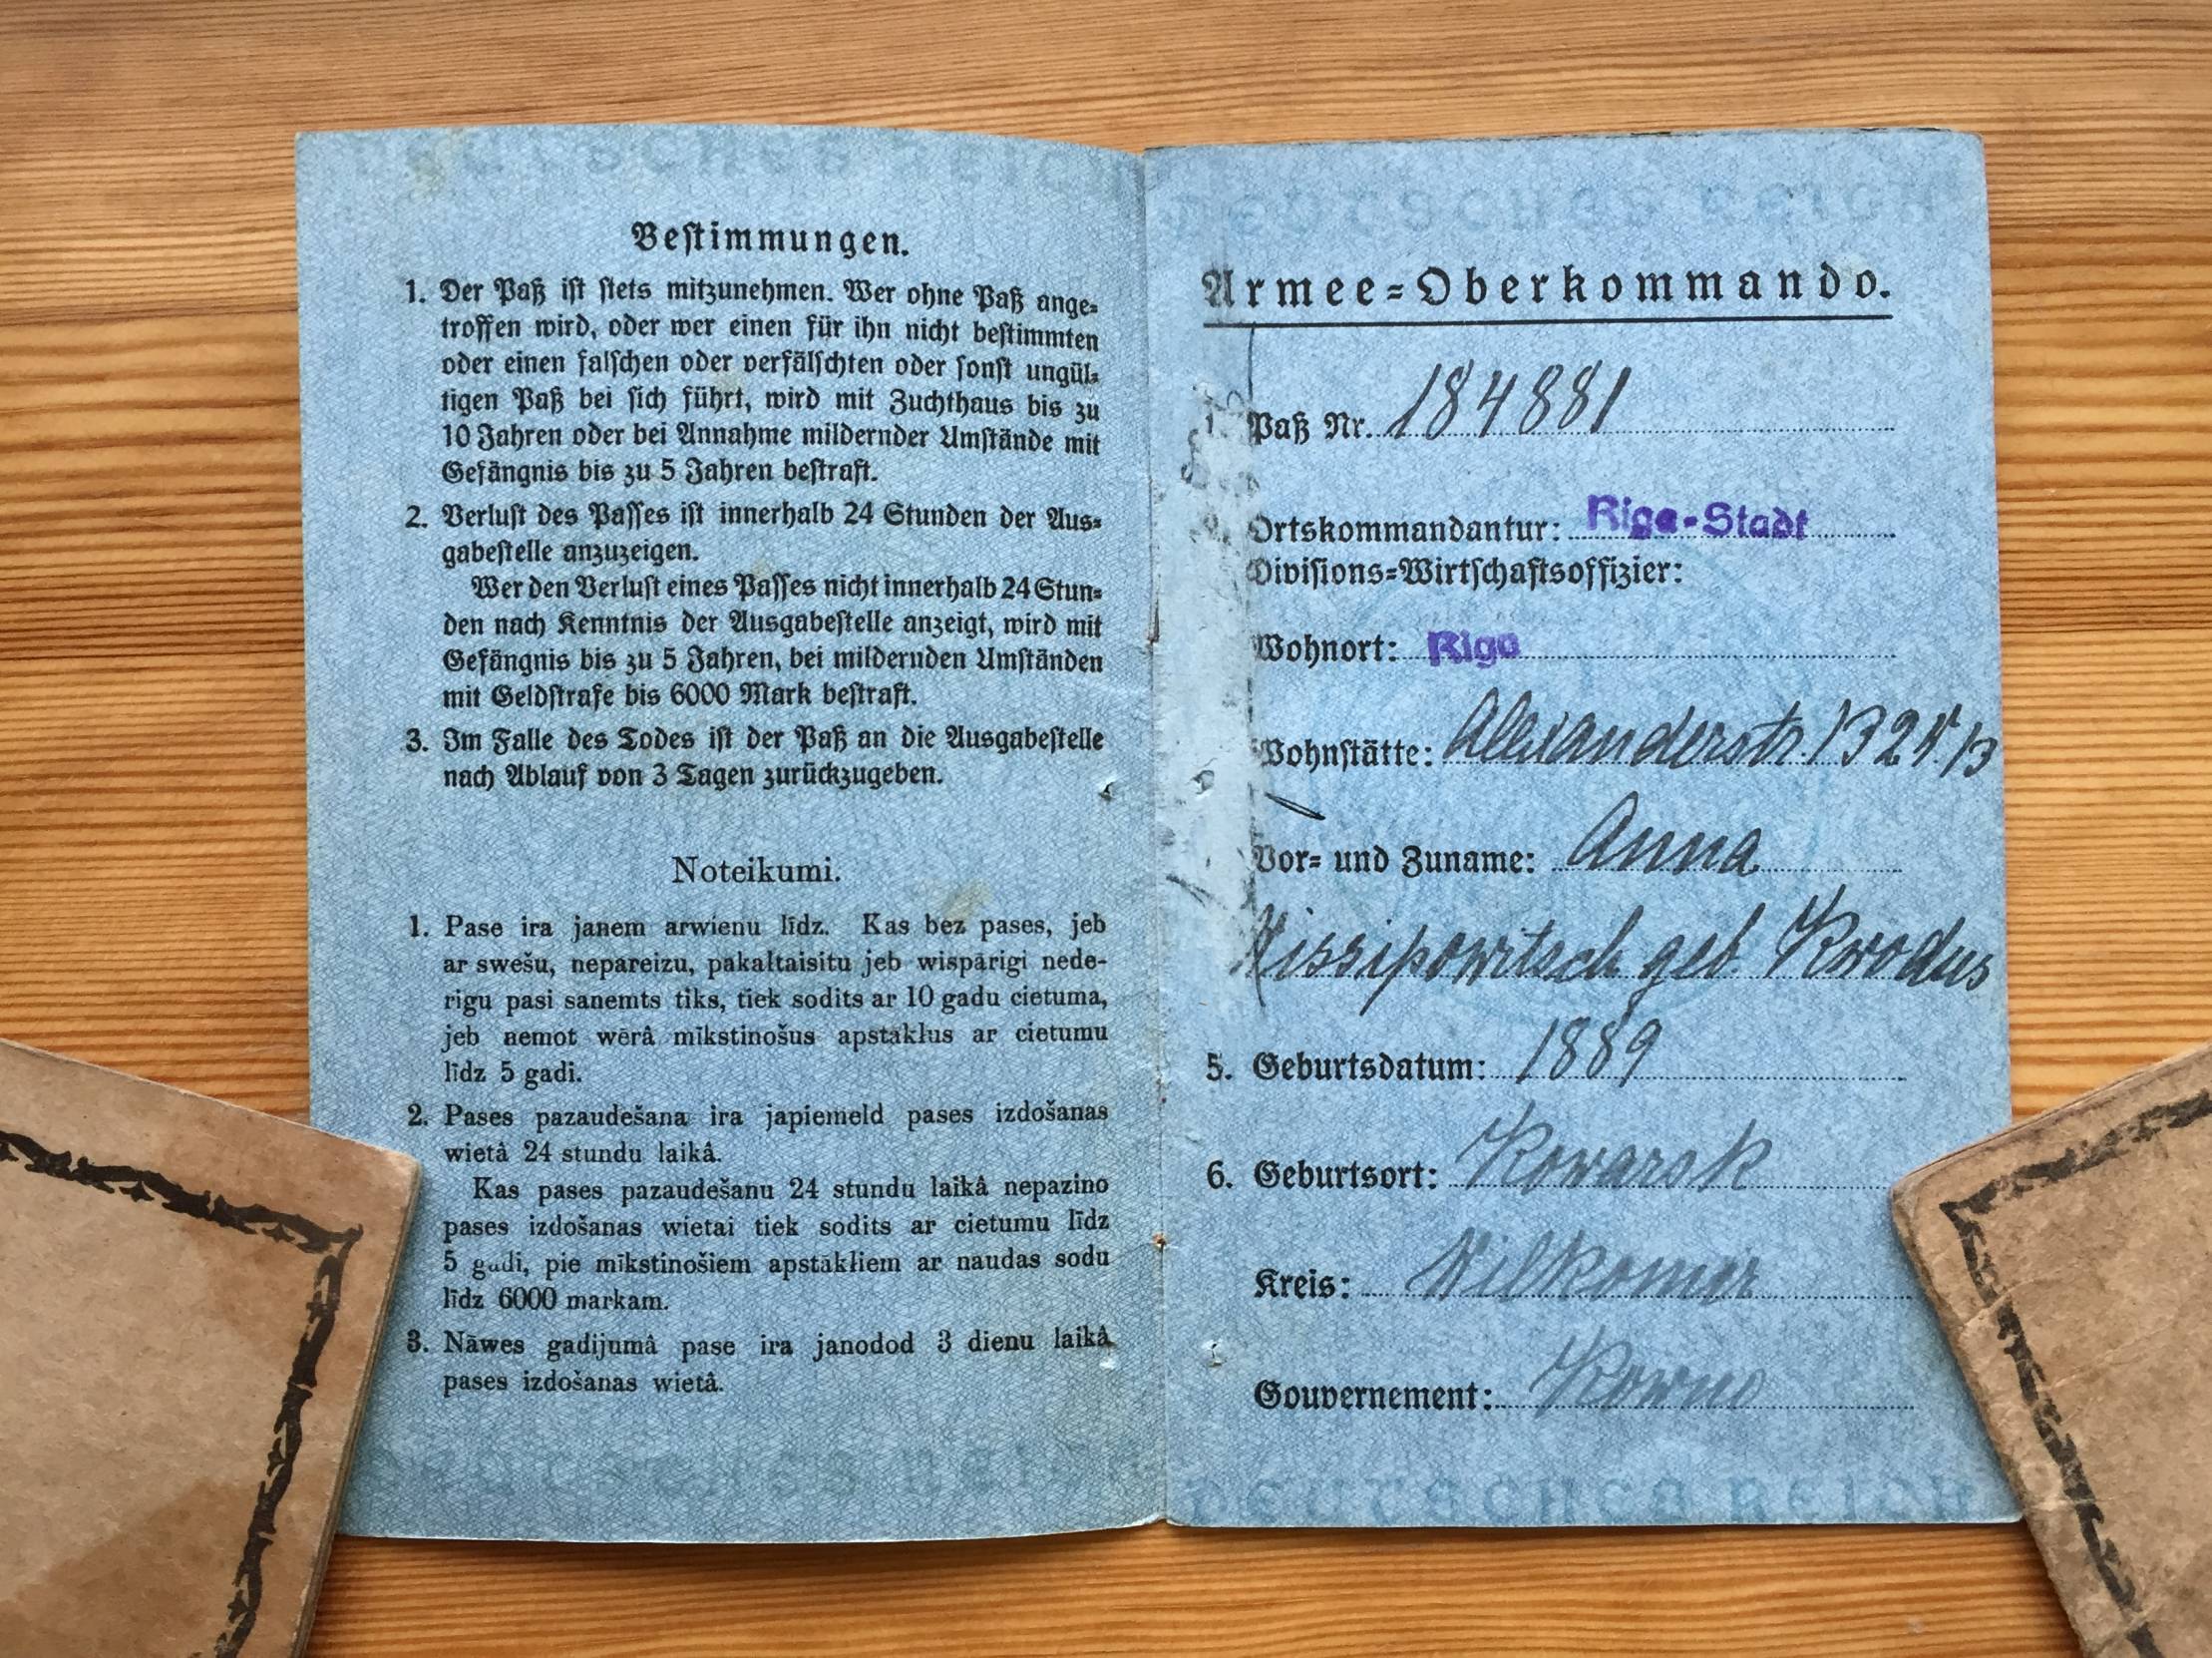 DEUTSCHES REICH
Bestimmungen.
1. Der Paß ist stets mitzunehmen. Wer ohne Paß ange-
troffen wird, oder wer einen für ihn nicht bestimmten
oder einen falschen oder verfälschten oder sonst ungül-
tigen Paß bei sich führt, wird mit Zuchthaus bis zu
10 Jahren oder bei Annahme mildernder Umstände mit
Gefängnis bis zu 5 Jahren bestraft.
2. Verlust des Passes ist innerhalb 24 Stunden der Aus-
gabestelle anzuzeigen.
Wer den Verlust eines Passes nicht innerhalb 24 Stun-
den nach Kenntnis der Ausgabestelle anzeigt, wird mit
Gefängnis bis zu 5 Jahren, bei mildernden Umständen
mit Geldstrafe bis 6000 Mark bestraft.
3. Im Falle des Todes ist der Paß an die Ausgabestelle
nach Ablauf von 3 Tagen zurückzugeben.
Noteikumi.
1. Pase ira janem arwienu līdz. Kas bez pases, jeb
ar swešu, nepareizu, pakaltaisitu jeb wispārigi nede-
rigu pasi sanemts tiks, tiek sodits ar 10 gadu cietuma,
jeb nemot wērâ mīkstinošus apstaklus ar cietumu
līdz 5 gadi.
2. Pases pazaudešana ira japiemeld pases izdošanas
wietâ 24 stundu laikâ.
Kas pases pazaudešanu 24 stundu laikâ nepazino
pases izdošanas wietai tiek sodits ar cietumu līdz
5 gadi, pie mīkstinošiem apstākliem ar naudas sodu
līdz 6000 markam.
3. Nāwes gadijumâ pase ira janodod 3 dienu laikâ
pases izdošanas wietâ.
DEUTSCHES REICH
Armee-Oberkommando.
1. Paß Nr. 184881
Ortskommandantur: Riga-Stadt
Divisions-Wirtschaftsoffizier:
Wohnort: Riga
Wohnstätte: Alexanderstr. 13
Vor- und Zuname: Anna
Wissipowitsch geb. Kwodus
5. Geburtsdatum: 1889
6. Geburtsort: Kowarsk
Kreis: Wilkomir
Gouvernement: Kowno
DEUTSCHES REICH